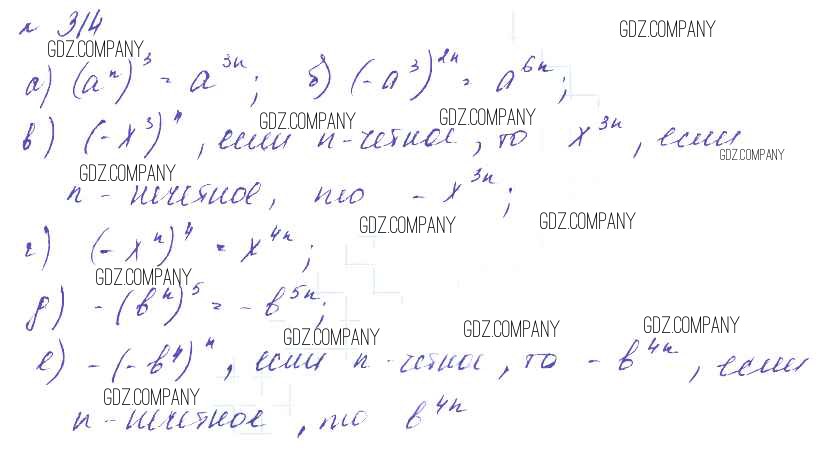 № 314
GDZ.COMPANY GDZ.COMPANY
а) (aⁿ)³ = a³ⁿ; б) (-a³)²ⁿ = a⁶ⁿ;
GDZ.COMPANY GDZ.COMPANY
в) (-x³)ⁿ, если n-четное, то x³ⁿ, если
GDZ.COMPANY GDZ.COMPANY
n - нечетное, то - x³ⁿ;
GDZ.COMPANY GDZ.COMPANY
г) (-xⁿ)⁴ = x⁴ⁿ;
GDZ.COMPANY
д) -(bⁿ)⁵ = -b⁵ⁿ;
GDZ.COMPANY GDZ.COMPANY GDZ.COMPANY
е) -(-b⁴)ⁿ, если n-четное, то -b⁴ⁿ, если
GDZ.COMPANY
n-нечетное, то b⁴ⁿ